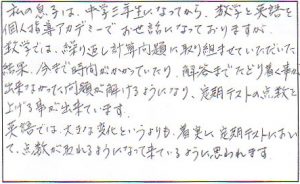 私の息子は、中学三年生になってから、数学と英語を
個人指導アカデミーでお世話になっておりますが、
数学では、繰り返し計算問題に取り組ませていただいた
結果、今まで時間がかかっていたり、解答までたどり着く事が
出来なかった問題が解けるようになり、定期テストの点数を
上げる事が出来ています。
英語では、大きな変化というよりも、着実に定期テストにおい
て、点数が取れるようになって来ているように思われます。